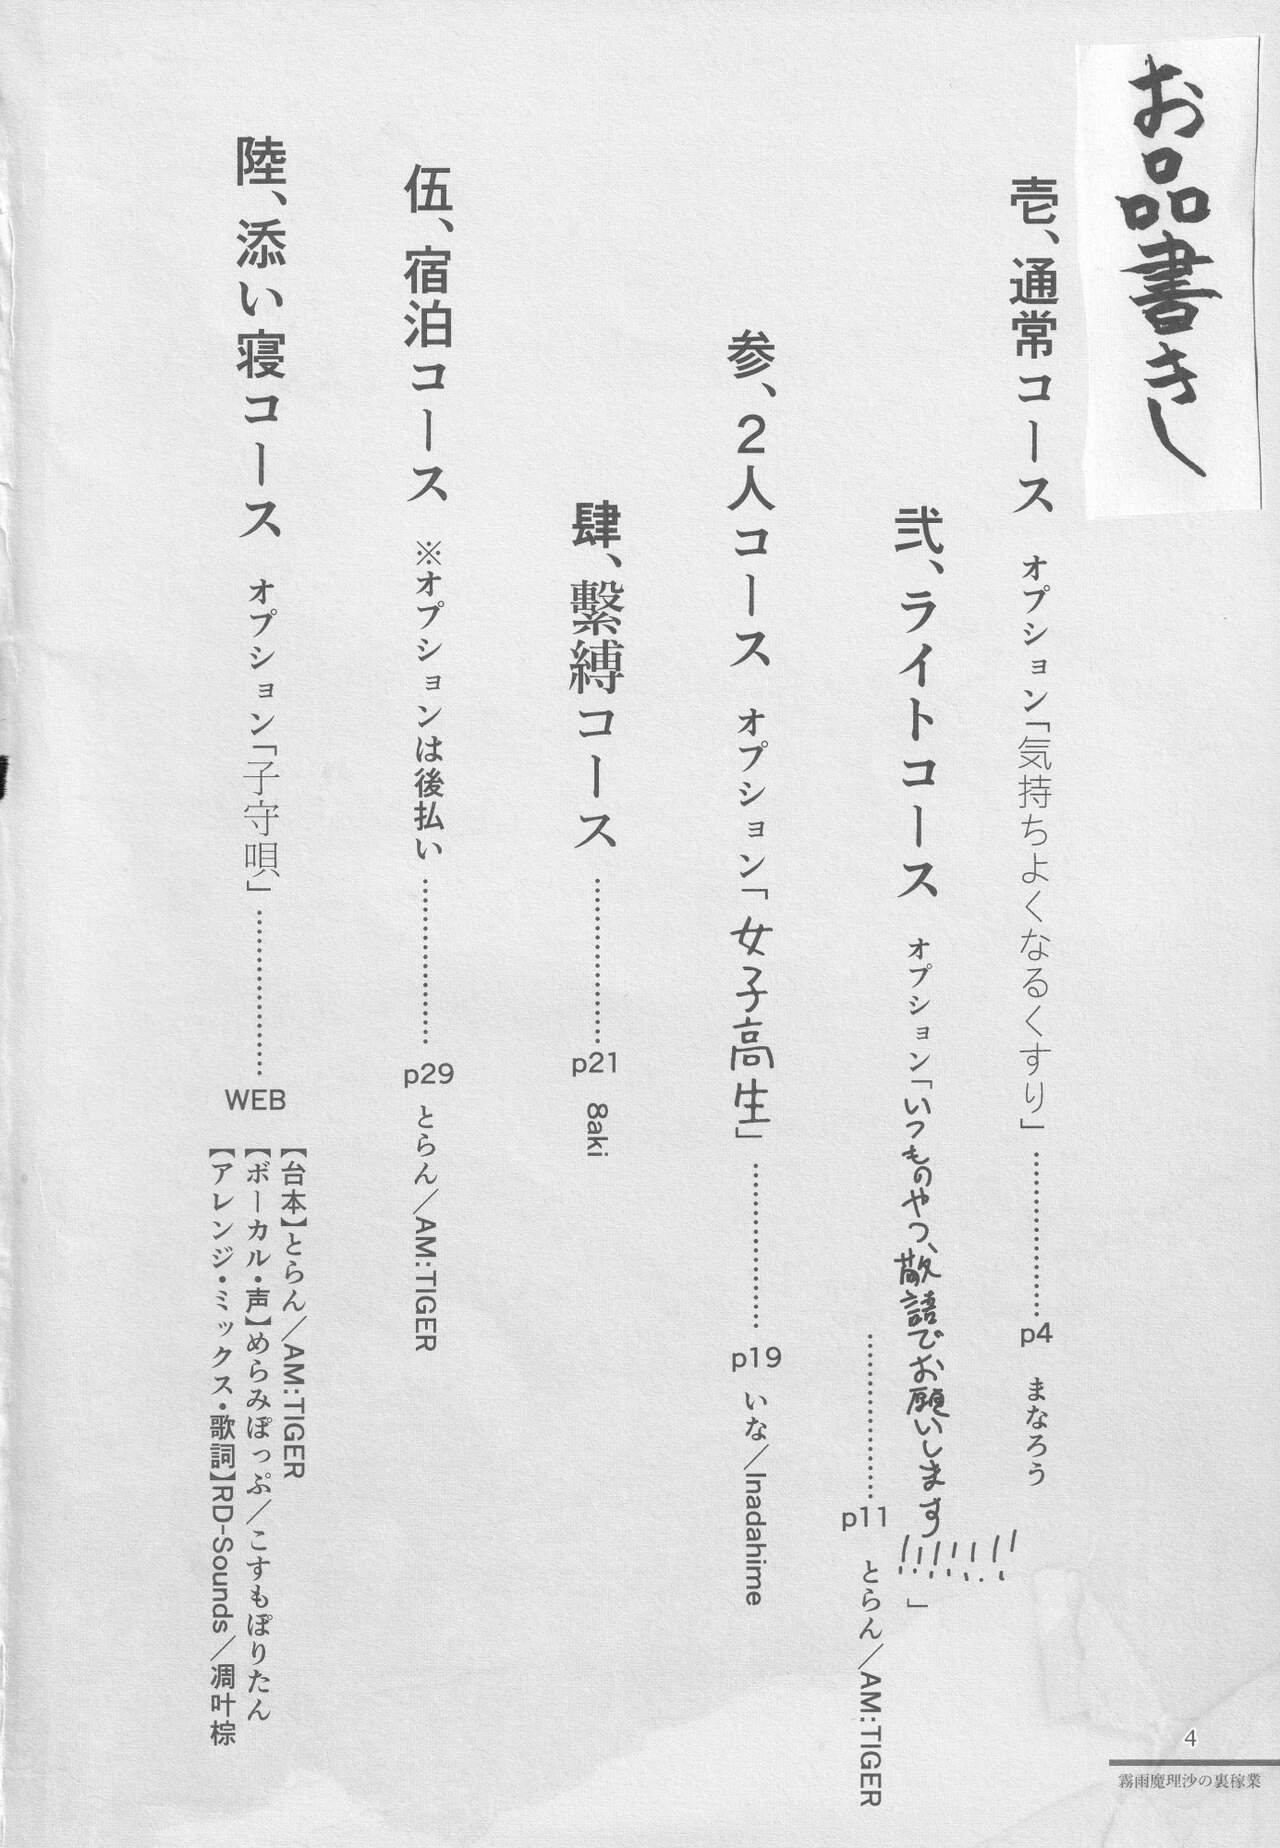 お品書き
壱、通常コース オプション「気持ちよくなるくすり」……………… p4 まなろう
弐、ライトコース オプション「いつものやつ、敬語でお願いします!!!!!!!」
……………… p11 とらん／AM:TIGER
参、2人コース オプション「女子高生」……………… p19 いな／Inadahime
肆、繫縛コース ……………… p21 8aki
伍、宿泊コース ※オプションは後払い ……………… p29 とらん／AM:TIGER
陸、添い寝コース オプション「子守唄」……………… WEB
【台本】とらん／AM:TIGER
【ボーカル・声】めらみぽっぷ／こすもぽりたん
【アレンジ・ミックス・歌詞】RD-Sounds／凋叶棕
4
霧雨魔理沙の裏稼業